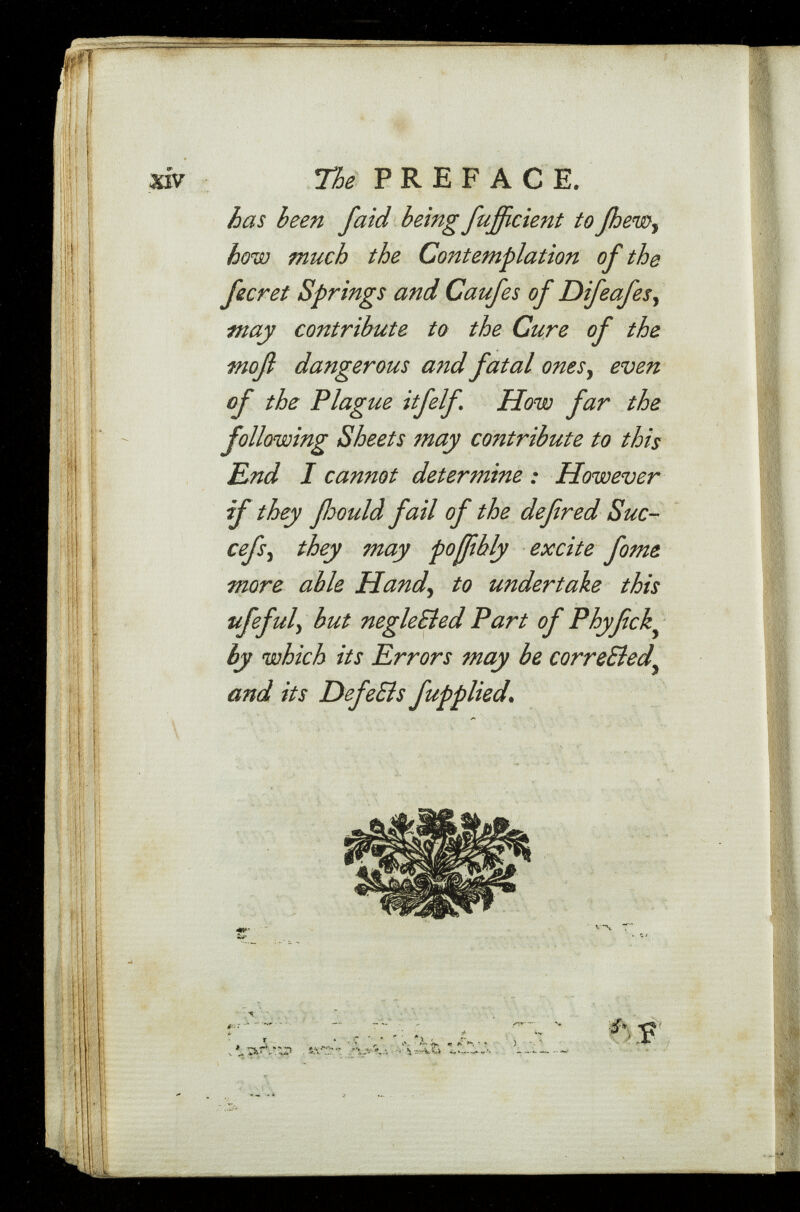 xiv The PREFACE.
has been ſaid being ſufficient to ſhew,
how much the Contemplation of the
ſecret Springs and Cauſes of Diſeaſes,
may contribute to the Cure of the
moſt dangerous and fatal ones, even
of the Plague itſelf. How far the
following Sheets may contribute to this
End I cannot determine : However
if they ſhould fail of the deſired Suc-
ceſs, they may poſſibly excite ſome
more able Hand, to undertake this
uſeful, but neglected Part of Phyſick,
by which its Errors may be corrected,
and its Defects ſupplied.
OF